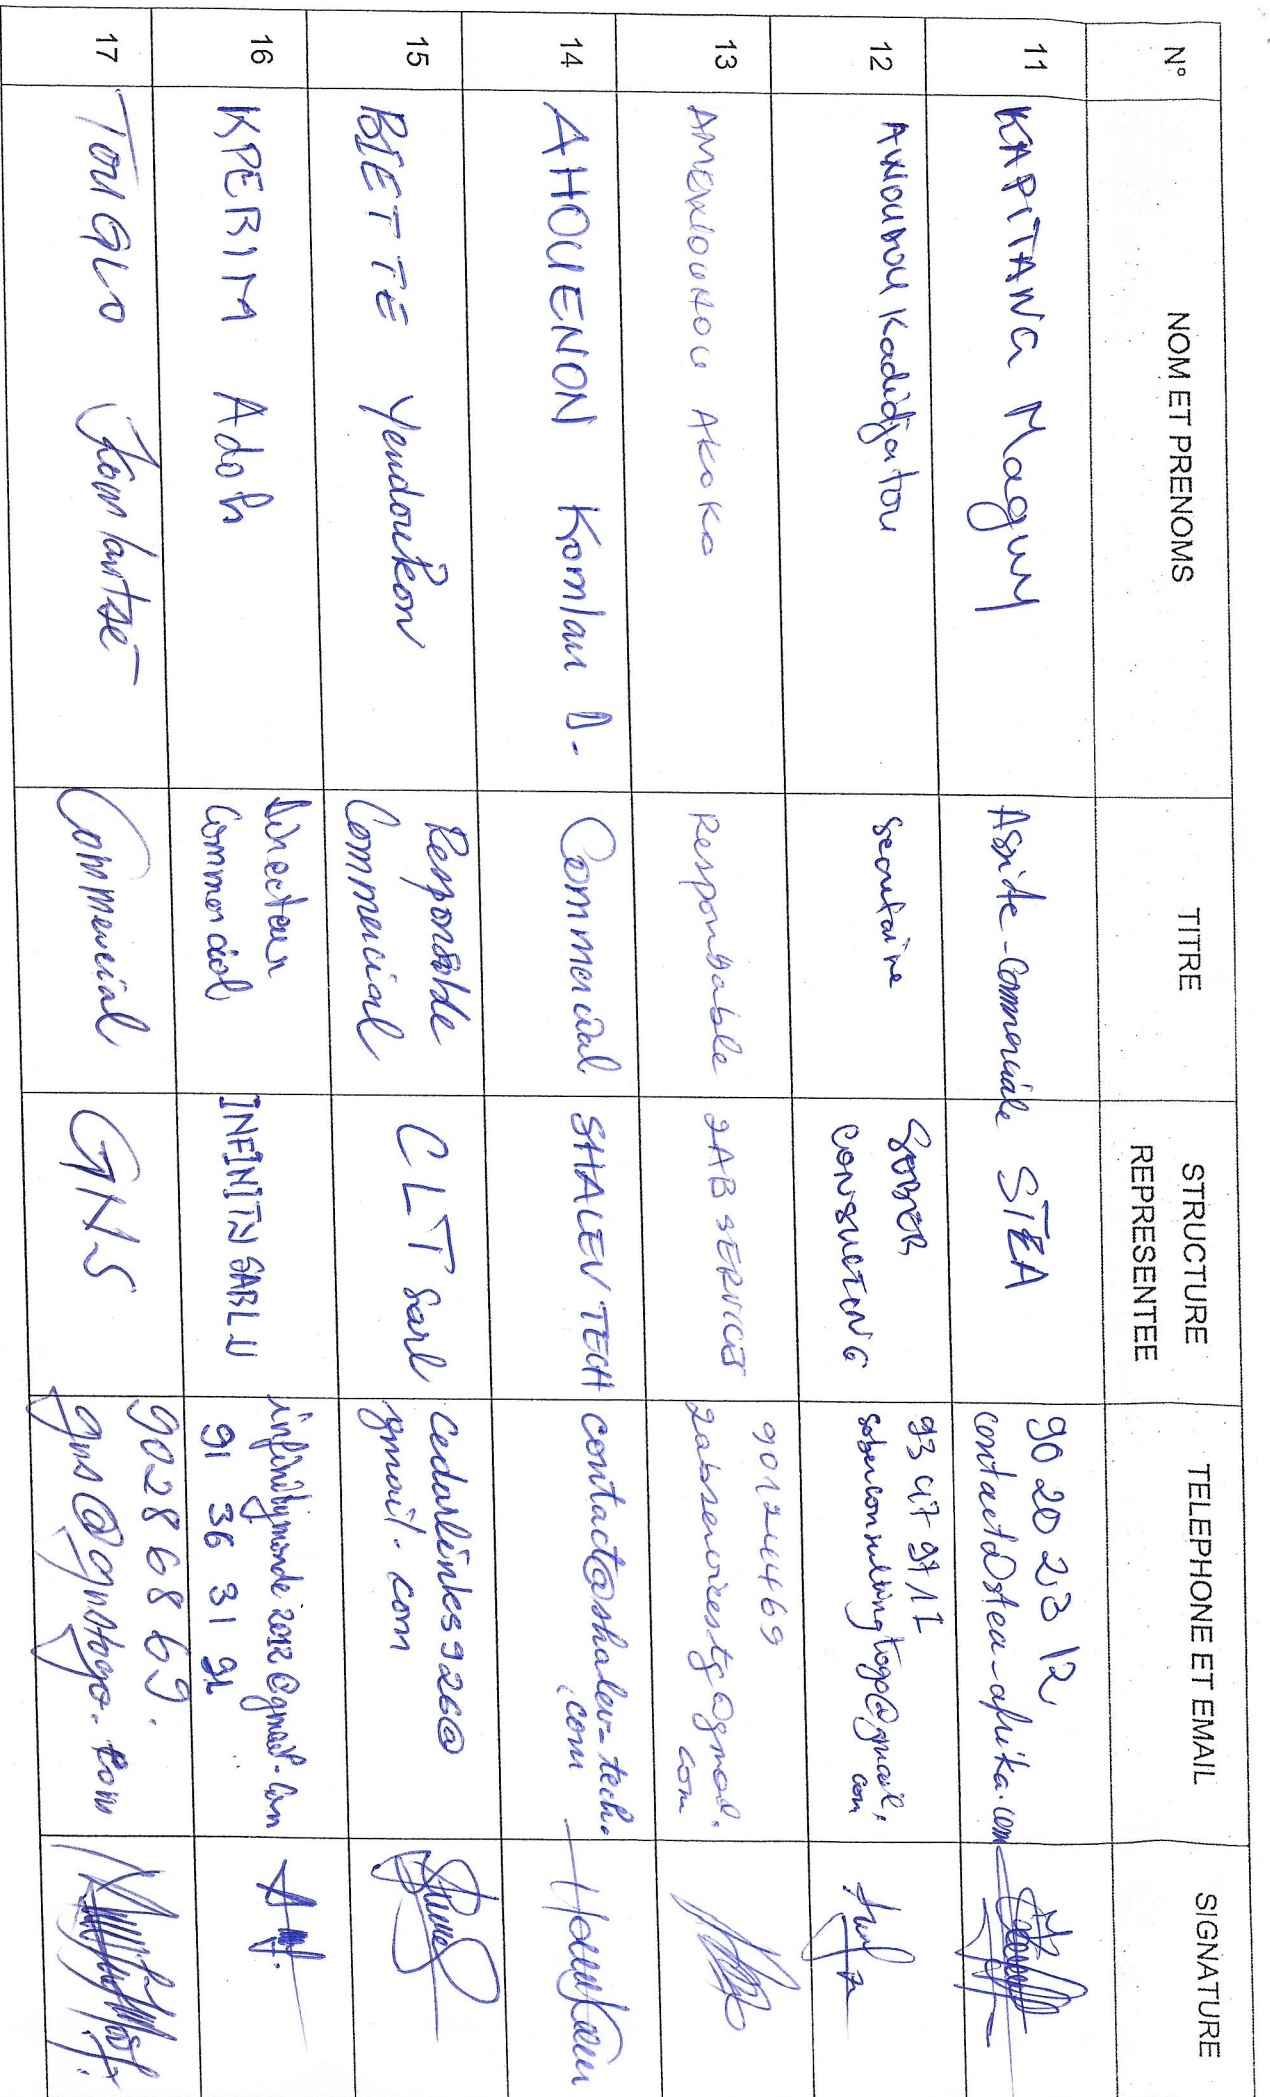 N° NOM ET PRENOMS TITRE STRUCTURE REPRESENTEE TELEPHONE ET EMAIL SIGNATURE
11 KAPITANG Maguy Assite-Commerciale STEA 90 20 23 12
contact@stea-afrika.com
12 AWOUDOU Kadidjatou secretaire SOBER CONSULTING 93 47 97 11
soberconsultingtogo@gmail.com
13 AMENLOUHOU Akoko Responsable 2AB SERVICES 90124469
2abservicestg@gmail.com
14 AHOUENON Komlan D. Commercial SHALEV TECH contact@shalev-tech.com
15 BIETTE Yendoukon Responsable Commercial CLT Sarl cedarlinks926@gmail.com
16 KPERIM Adoh Directeur Commercial INFINITY SARL U infinitymonde2012@gmail.com
91 36 31 91
17 TOUGLO Komlantsè Commercial GNS 90286869.
gns@gnstogo.com